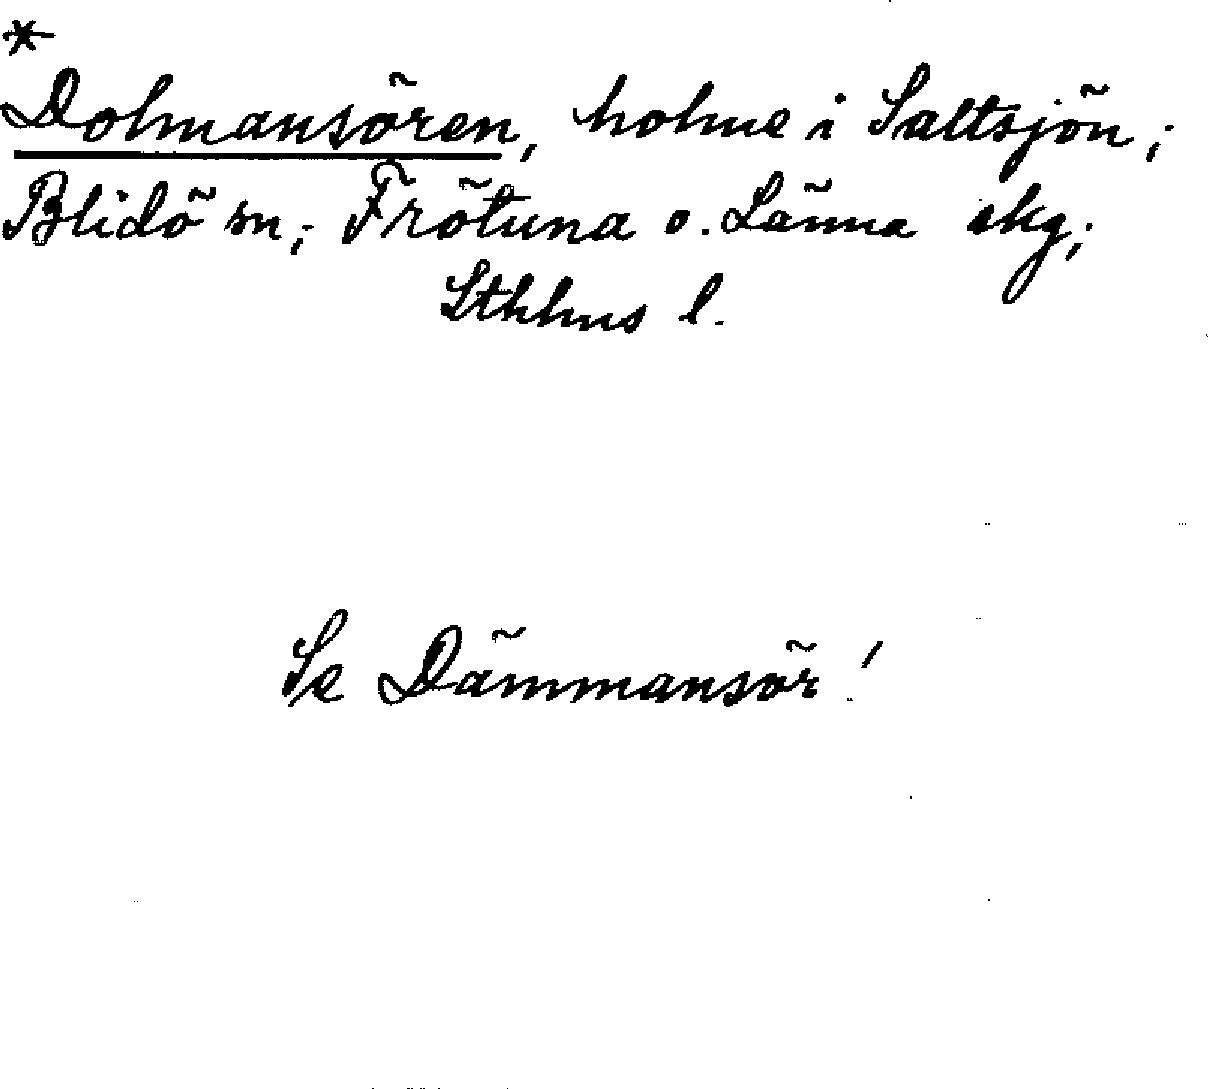 *
Dolmansören, holme i Saltsjön;
Blidö sn; Frötuna o. Länna skg;
Sthlms l.
Se Dämmansör!